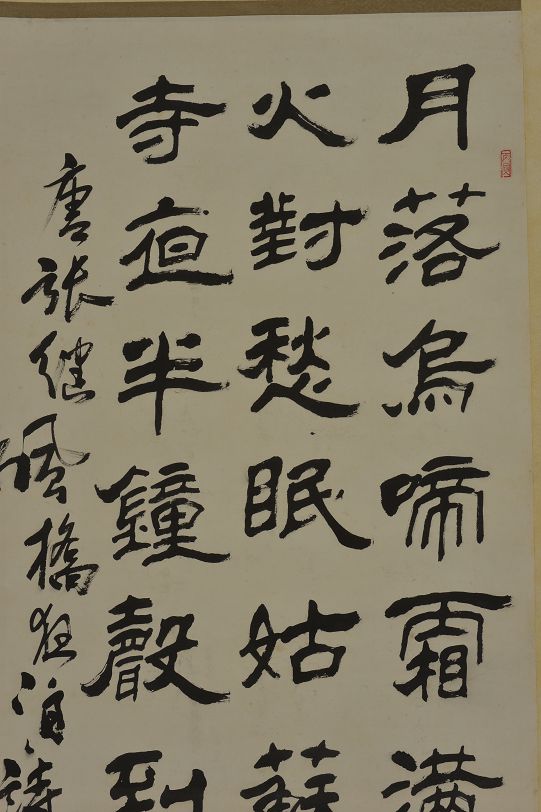 月落烏啼霜滿
火對愁眠姑蘇
寺夜半鐘聲到
唐張繼楓橋夜泊詩